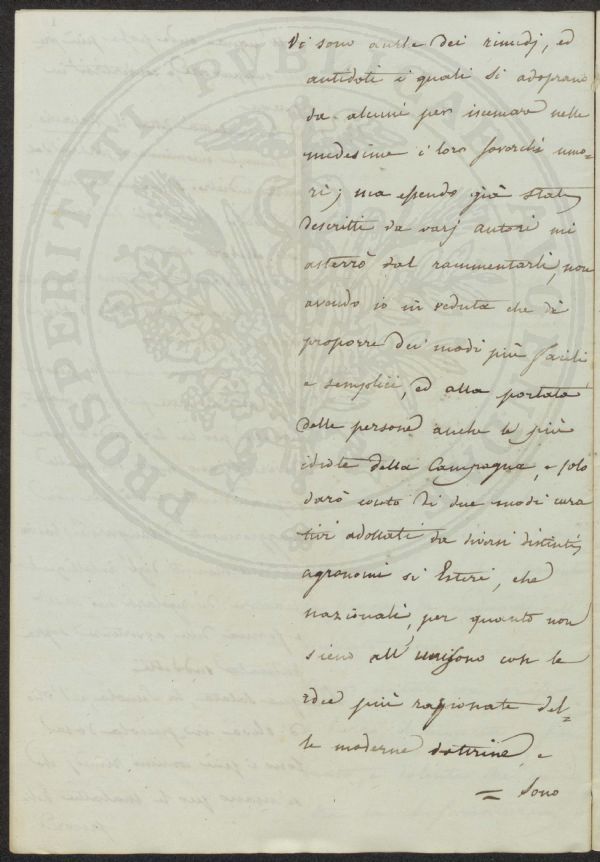 Vi sono anche dei rimedj, ed
antidoti i quali si adoprano
da alcuni per iscemare nelle
medesime i loro soverchi umo-
ri; ma essendo già stati
descritti da varj autori mi
asterrò dal rammentarli, non
avendo io in veduta che di
proporre dei modi più facili
e semplici, ed alla portata
delle persone anche le più
idiote della Campagna, e solo
darò conto di due modi cura
tivi adottati da diversi distinti
agronomi si Esteri, che
nazionali, per quanto non
sieno all'unisono con le
idee più ragionate del-
le moderne dottrine, e
= Sono
PROSPERITATI PUBLICAE AUGENDAE